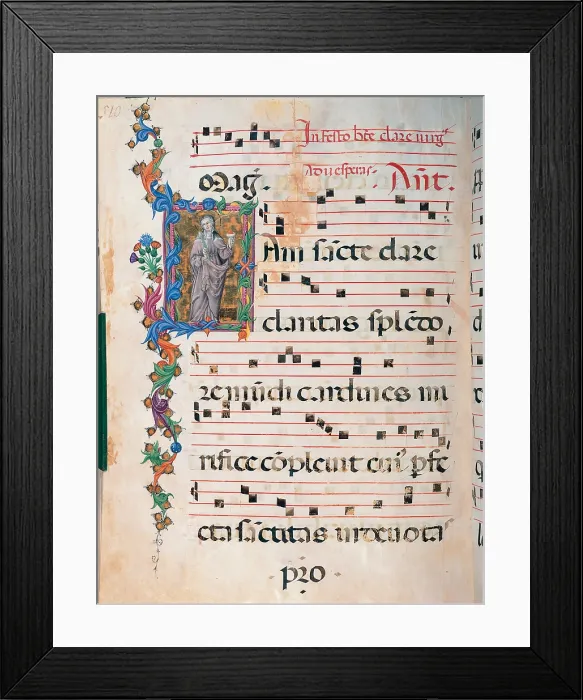 In festo bte clare virg
Ad vesperas. Añt.
Mag.
Am sancte clare
claritas splẽdo
re mũdi cardines mi
rifice cõpleuit cui' pfe
cta sãctitas
pro